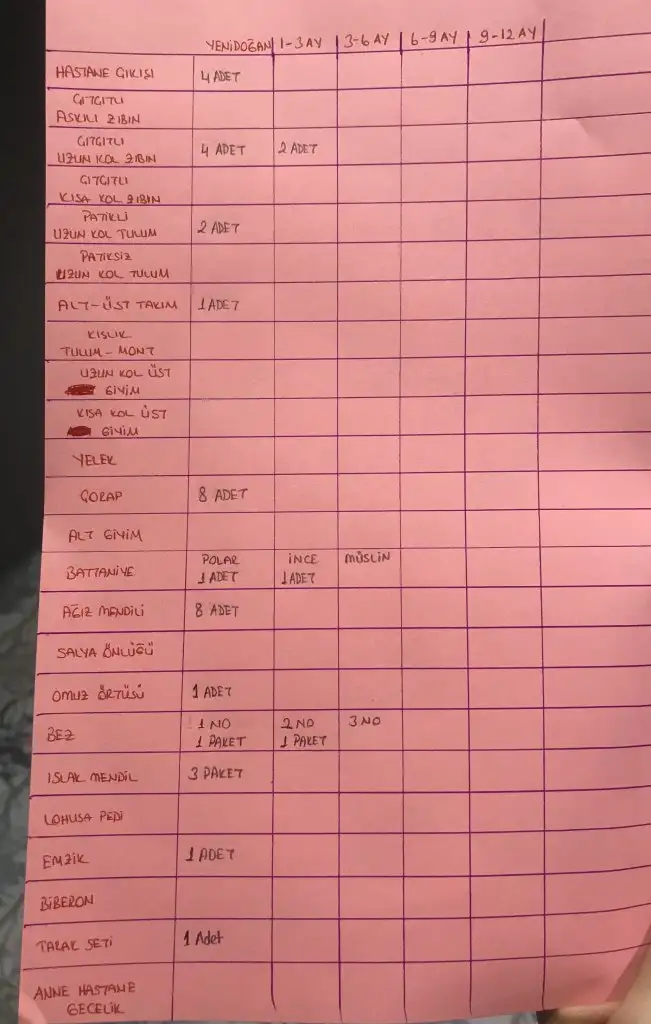 YENİDOĞAN 1-3 AY 3-6 AY 6-9 AY 9-12 AY
HASTANE ÇIKIŞI 4 ADET
ÇITÇITLI
ASKILI ZIBIN
ÇITÇITLI
UZUN KOL ZIBIN 4 ADET 2 ADET
ÇITÇITLI
KISA KOL ZIBIN
PATİKLİ
UZUN KOL TULUM 2 ADET
PATİKSİZ
UZUN KOL TULUM
ALT-ÜST TAKIM 1 ADET
KIŞLIK
TULUM-MONT
UZUN KOL ÜST
GİYİM
KISA KOL ÜST
GİYİM
YELEK
ÇORAP 8 ADET
ALT GİYİM
BATTANİYE POLAR İNCE MÜSLİN
1 ADET 1 ADET
AĞIZ MENDİLİ 8 ADET
SALYA ÖNLÜĞÜ
OMUZ ÖRTÜSÜ 1 ADET
BEZ 1 NO 2 NO 3 NO
1 PAKET 1 PAKET
ISLAK MENDİL 3 PAKET
LOHUSA PEDİ
EMZİK 1 ADET
BİBERON
TARAK SETİ 1 Adet
ANNE HASTANE
GECELİK